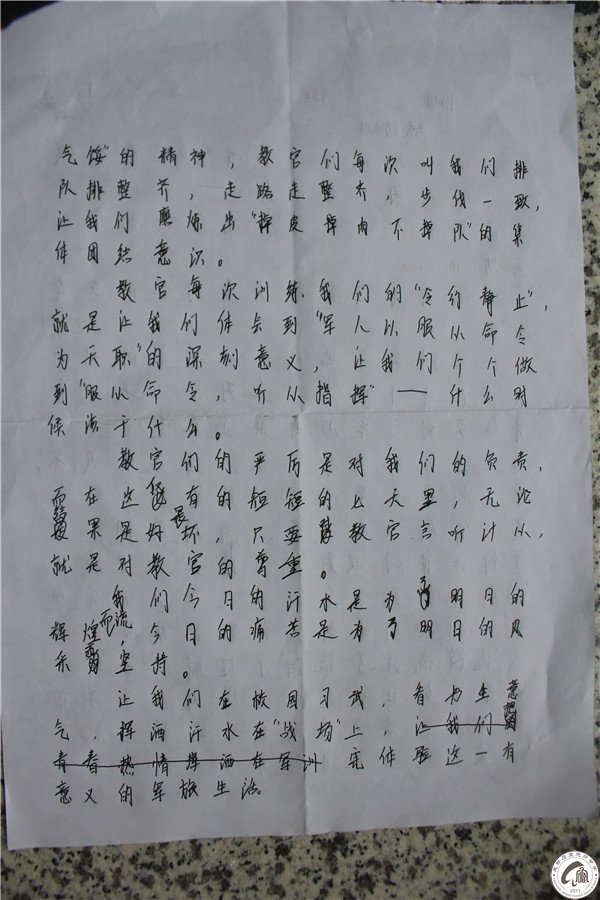 气馁”的精神，教官们每次叫我们排
队排整齐，走路走整齐，步伐一致，
让我们磨炼出“掉皮掉肉不掉队”的集
体团结意识。
教官每次训练我们的“令行静止”，
就是让我们体会到“军人以服从命令
为天职”的深刻意义，让我们个个做
到“服从命令，听从指挥”——什么时
候该干什么。
教官们的严厉是对我们的负责，
而在这仅有的短短的七天里，无论
结果是好是坏，只要教官言听计从，
就是对教官的尊重。
我们今日的汗水是为了明日的
辉煌而流，今日的痛苦是为了明日的风
采而坚持。
让我们在校园习武，看书生意
气，挥洒汗水在“战场”上，让我们
青春热情挥洒在军训 完体验这一有
意义的军旅生活。
2011